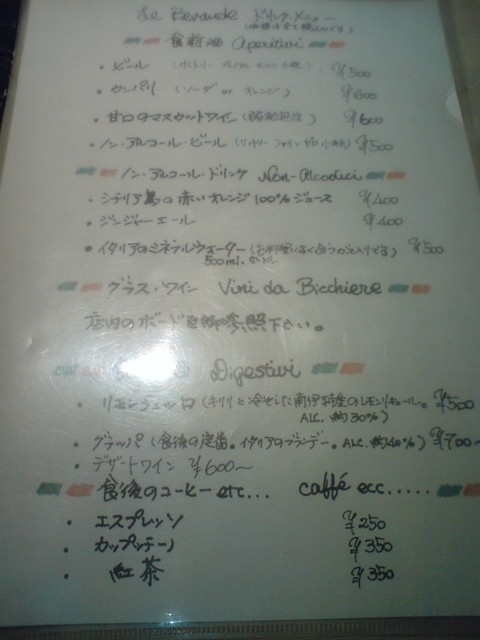 Le Bevande ドリンクメニュー
食前酒 Aperitivi
・ビール ¥500
・カンパリ (ソーダ or オレンジ) ¥600
・甘口のマスカットワイン (弱発泡) ¥600
・ノン・アルコール・ビール ¥500
ノン・アルコール・ドリンク Non-Alcolici
・シチリア島の赤いオレンジ100%ジュース ¥400
・ジンジャーエール ¥400
・イタリアのミネラルウォーター (お料理によく合うガス入りです) ¥500
500ml. ボトル
グラス・ワイン Vini da Bicchiere
店内のボードを御参照下さい。
Digestivi
・リモンチェッロ (キリリと冷やした南伊特産のレモンリキュール。 ¥500
ALC. 約30%)
・グラッパ (食後の定番。イタリアのブランデー。ALC.約40%) ¥700~
・デザートワイン ¥600~
食後のコーヒー etc... caffé ecc.....
・エスプレッソ ¥250
・カップッチーノ ¥350
・紅茶 ¥350